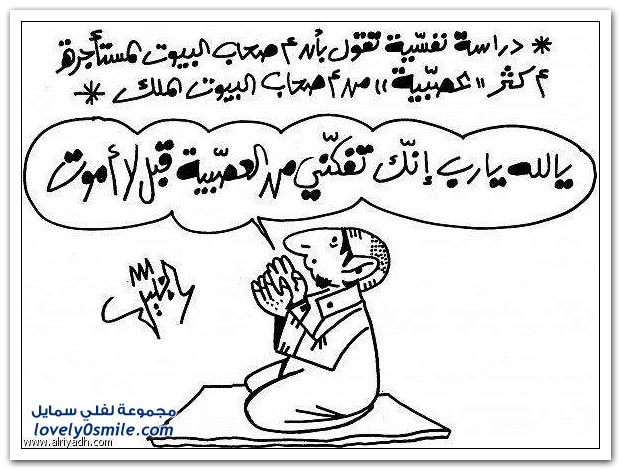 * دراسة نفسّية تقول بأن أصحاب البيوت المستأجرة
أكثر «عصبّية» من أصحاب البيوت الملك *
يالله يارب إنّك تفكّني من العصبّية قبل لا أموت
مجموعة لفلي سمايل
lovely0smile.com
www.alriyadh.com